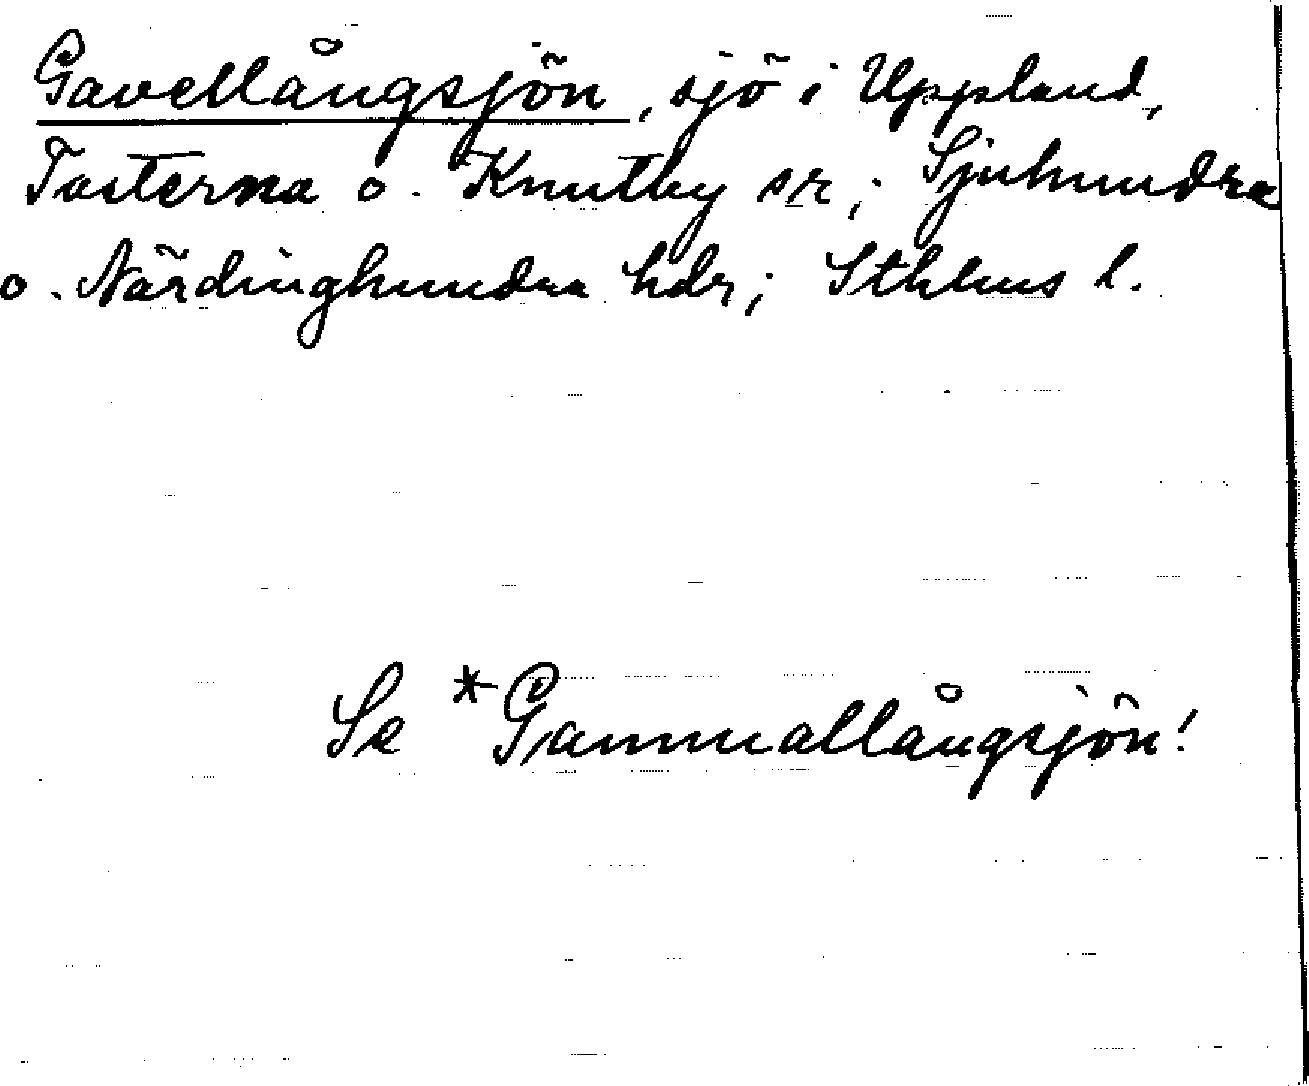 Gavellångsjön, sjö i Uppland,
Fasterna o. Knutby snr; Sjuhundra
o. Närdinghundra hdr; Sthlms l.
Se *Gammallångsjön!